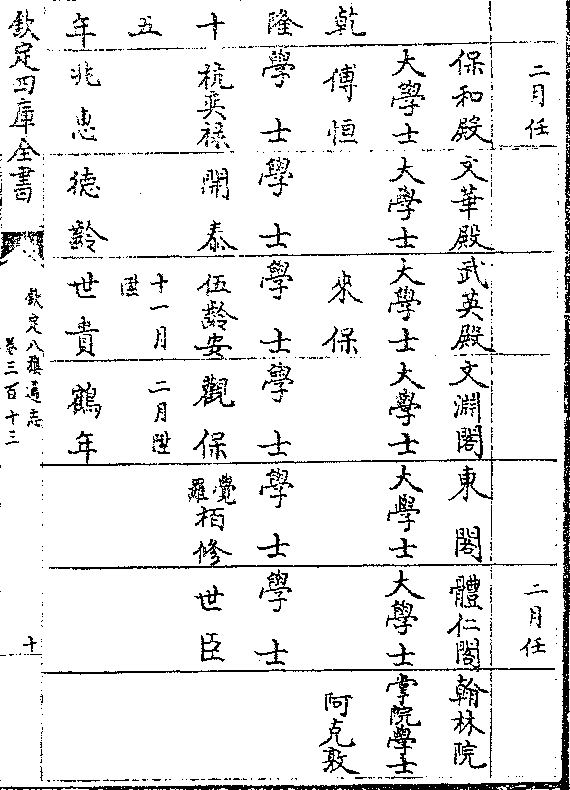 乾隆十五年
二月任 二月任
保和殿 文華殿 武英殿 文淵閣 東閣 體仁閣 翰林院
大學士 大學士 大學士 大學士 大學士 大學士 掌院學士
傅恒 來保 阿克敦
學士 學士 學士 學士 學士 學士
杭奕禄 開泰 伍齡安 觀保 覺羅栢修 世臣
十一月陞 二月陞
兆惠 德齡 世貴 鶴年
欽定四庫全書
欽定八旗通志
卷三百十三
十